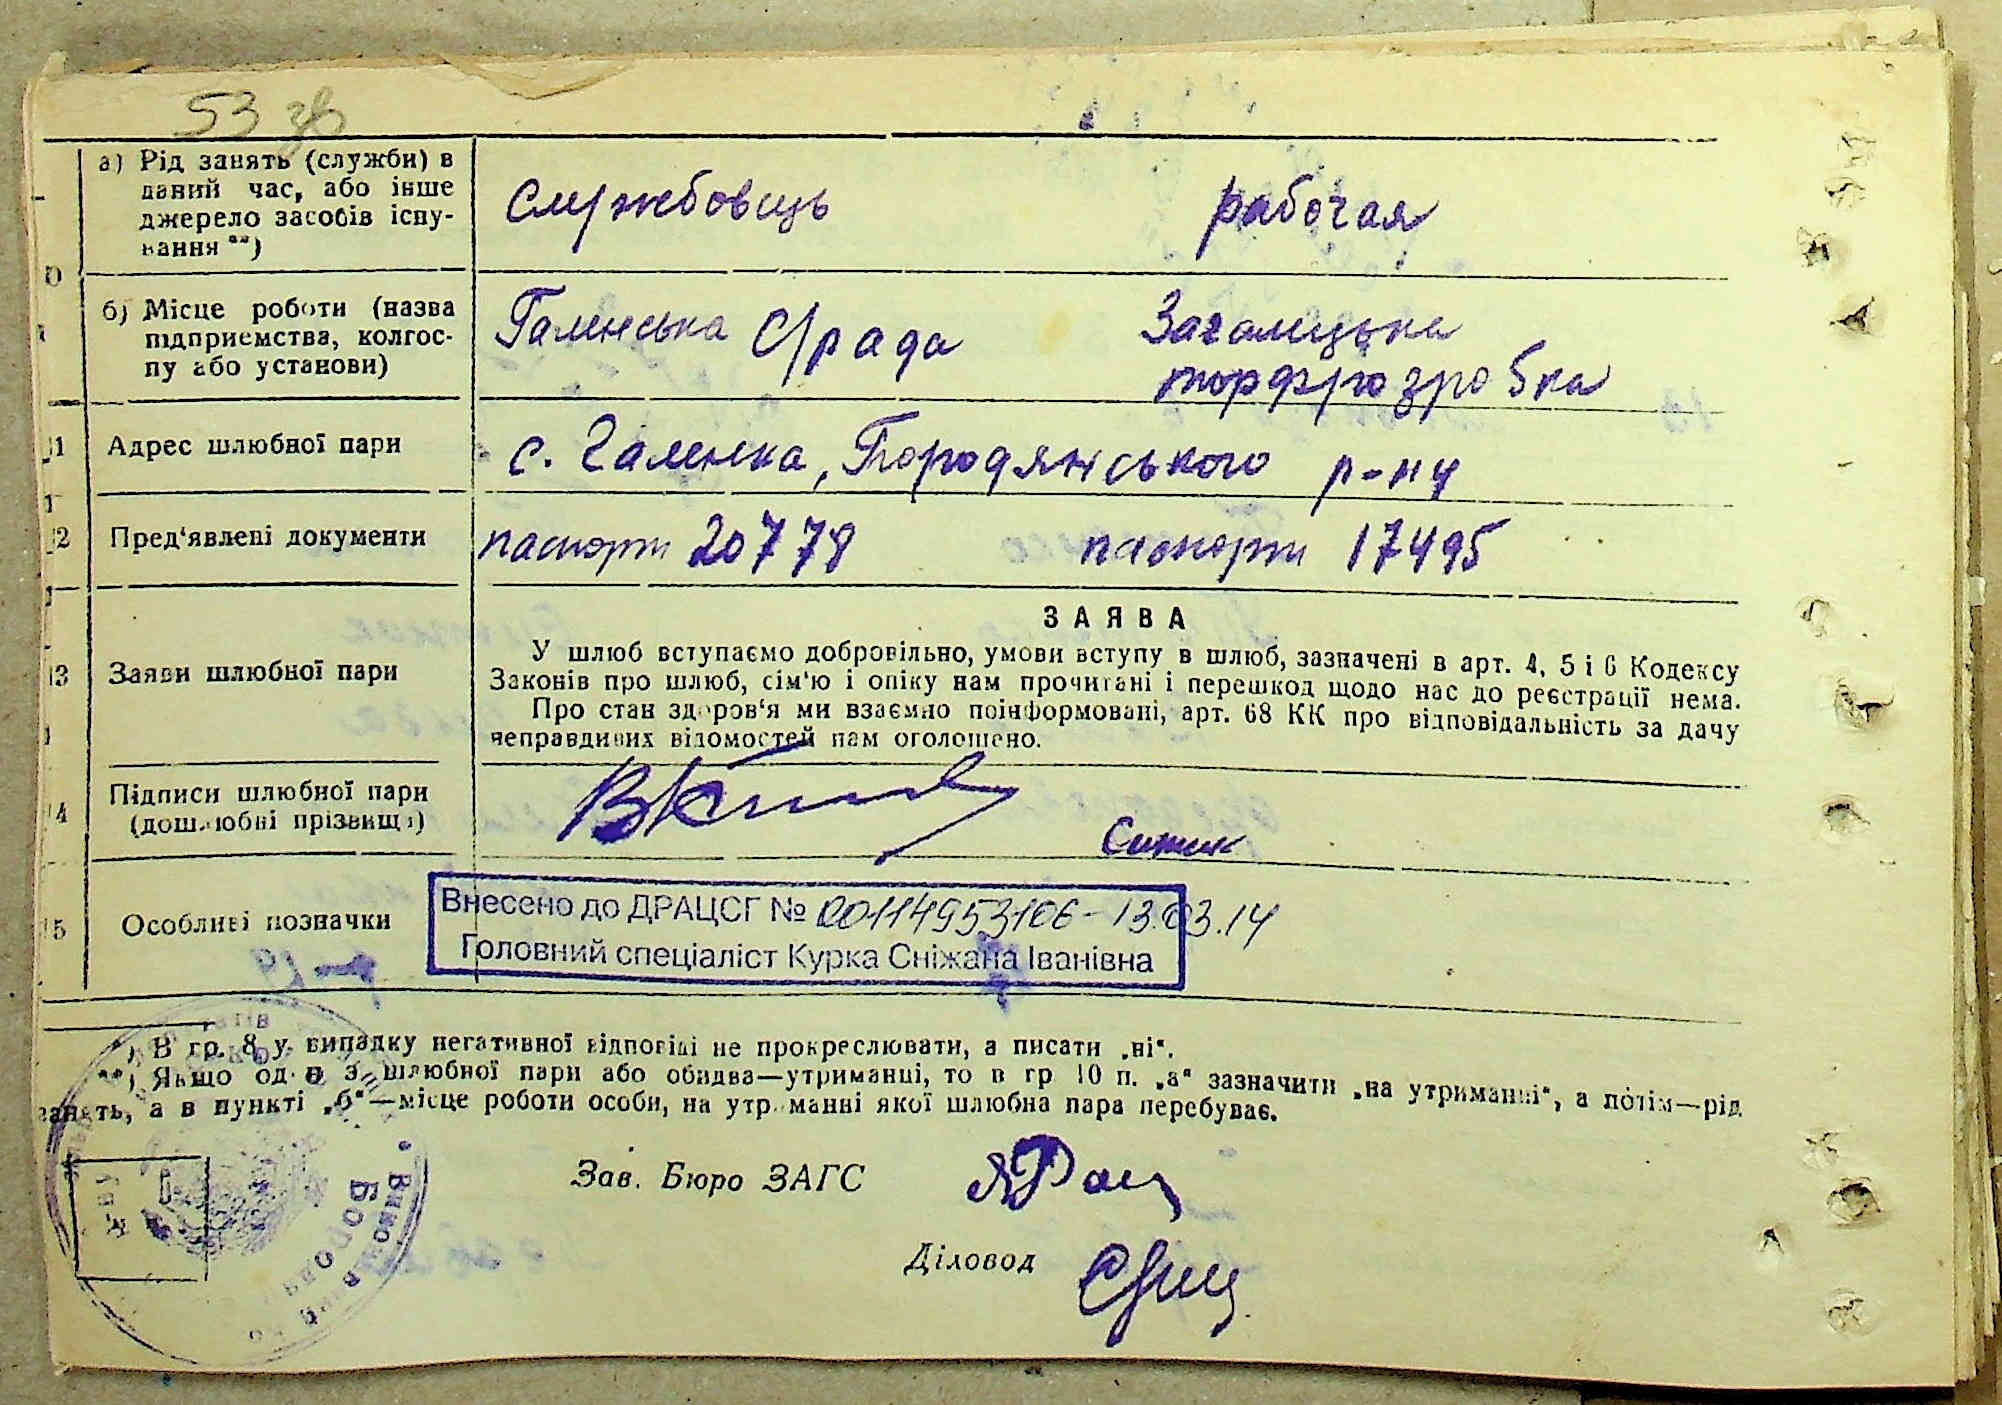 53 зв
а) Рід занять (служби) в
даний час, або інше
джерело засобів існу-
вання **)
службовець
рабочая
б) Місце роботи (назва
підприємства, колгос-
пу або установи)
Галинська с/рада
Загальцька
торфрозробка
11 Адрес шлюбної пари
с. Галинка, Бородянського р-ну
12 Пред'явлені документи
паспорти 20779
паспорти 17495
ЗАЯВА
13 Заяви шлюбної пари
У шлюб вступаємо добровільно, умови вступу в шлюб, зазначені в арт. 4, 5 і 6 Кодексу
Законів про шлюб, сім'ю і опіку нам прочитані і перешкод щодо нас до реєстрації нема.
Про стан здоров'я ми взаємно поінформовані, арт. 68 КК про відповідальність за дачу
неправдивих відомостей нам оголошено.
14 Підписи шлюбної пари
(дошлюбні прізвища)
15 Особливі позначки
Внесено до ДРАЦСГ № 00114953106 - 13.03.14
Головний спеціаліст Курка Сніжана Іванівна
*) В гр. 8 у випадку негативної відповіді не прокреслювати, а писати „ні“.
**) Якщо один з шлюбної пари або обидва—утриманці, то в гр 10 п. „а“ зазначити „на утриманні“, а потім—рід
занять, а в пункті „б“—місце роботи особи, на утриманні якої шлюбна пара перебуває.
Зав. Бюро ЗАГС
Діловод